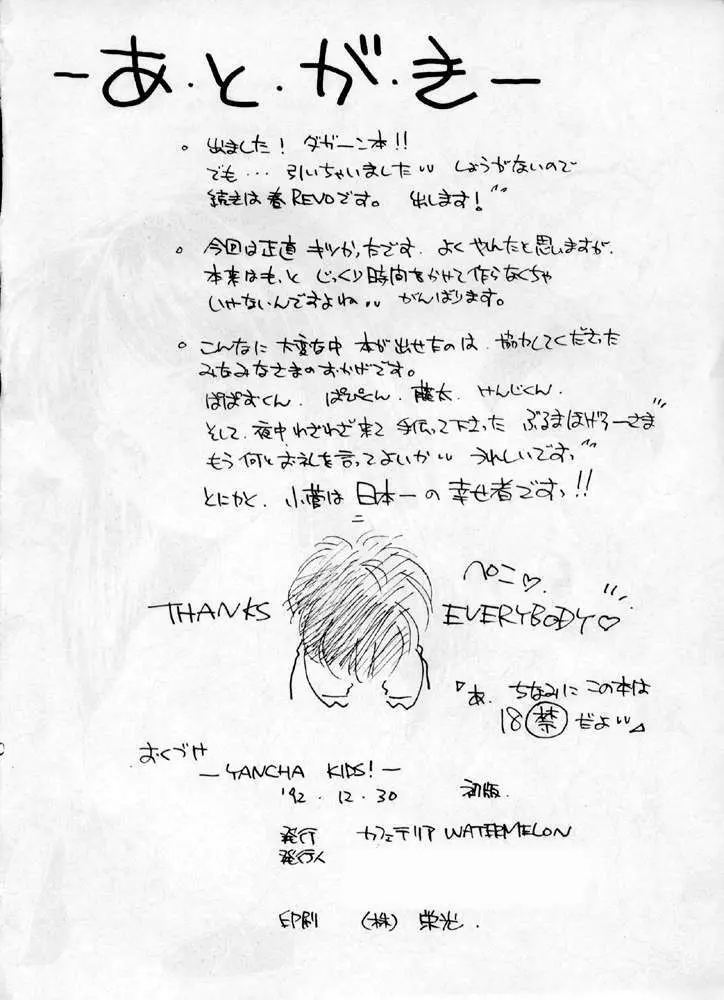 -あ・と・が・き-
・出ました! ダガーン本!!
でも… 引いちゃいました〃 しょうがないので
続きは春REVOです。 出します!〃
・今回は正直 キツかったです. よくやったと思いますが.
本来はもっと じっくり時間をかけて作らなくちゃ
いけないんですよね〃 がんばります。
・こんなに 大変な中 本が出せたのは. 協力してくださった
みなみなさまのおかげです。
ぱぱすくん. ぱぴくん. 藤太. けんじくん.
そして. 夜中わざわざ来て 手伝って下さった ぶるまほげろーさま〃
もう何とお礼を言ってよいか〃 うれしいですっ〃
とにかく. 小菅は 日本一の 幸せ者ですっ!!
ペこ♡.
THANKS EVERYBODY♡
『あ. ちなみに この本は
18禁だよ〃』
おくづけ
-YANCHA KIDS!-
'92.12.30 初版.
発行 カフェテリアWATERMELON
発行人
印刷 (株) 栄光.